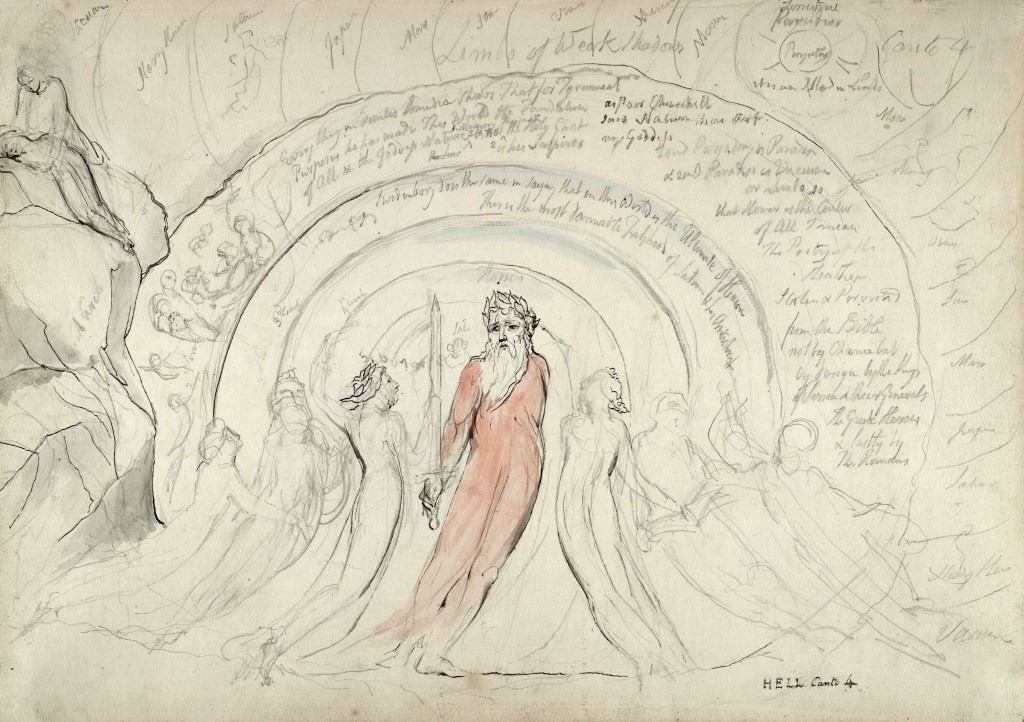 Vacuum
Starry Heaven
Saturn
Jupiter
Mars
Sun
Venus
Mercury
Moon
Limbo of Weak Shadows
Terrestrial
Paradise
Purgatory
it is an Island in Limbo
Canto 4
Every thing in Dantes Comedia Shews That for Tyrannical
Purposes he has made This World the Foundation
of All & the Goddess Nature & not the Holy Ghost
as Poor Churchill
said Nature thou art
my Goddess
Swedenborg does the same in saying that in this World is the Ultimate of Heaven
This is the most damnable Falshood of Satan & his Antichrist
Round Purgatory is Paradise
& round Paradise is Vacuum
or Limbo so
that Homer is the Center
of All I mean
The Poetry of the
Heathen
Stolen & Perverted
from the Bible
not by Chance but
by design by the Kings
of Persia & their Generals
The Greek Heroes
& lastly by
The Romans
Homer
Moon
Mercury
Venus
Sun
Mars
Jupiter
Saturn
Starry Heav
Vacuum
HELL Canto 4